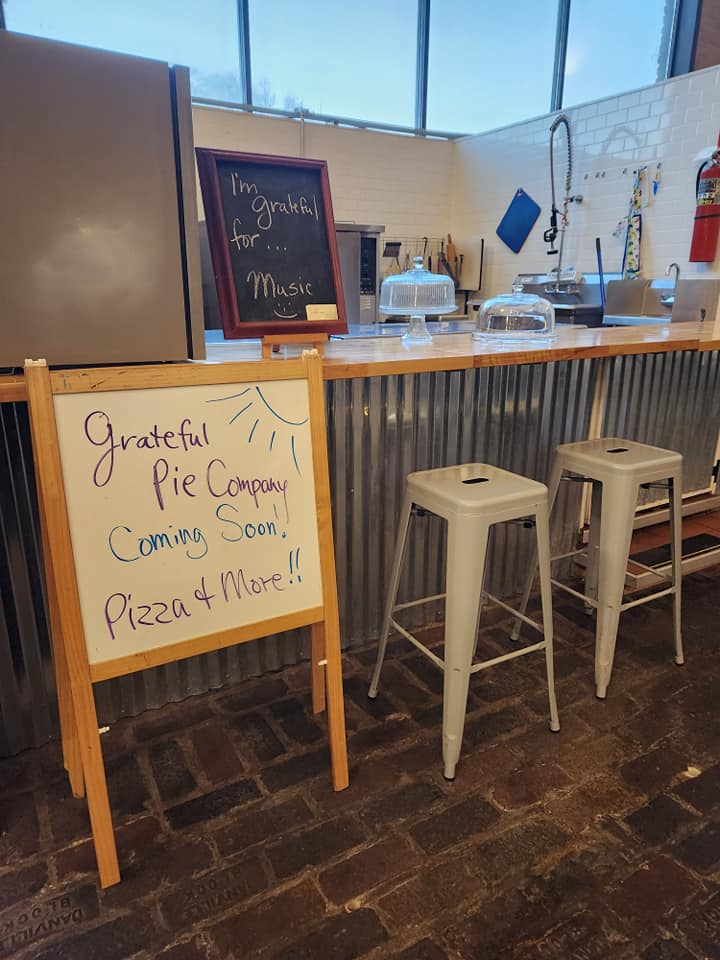 I'm
grateful
for ...
Music
Grateful
Pie Company
Coming Soon!
Pizza + More!!
DANVILLE
BLOCK
DANVILLE
BLOCK